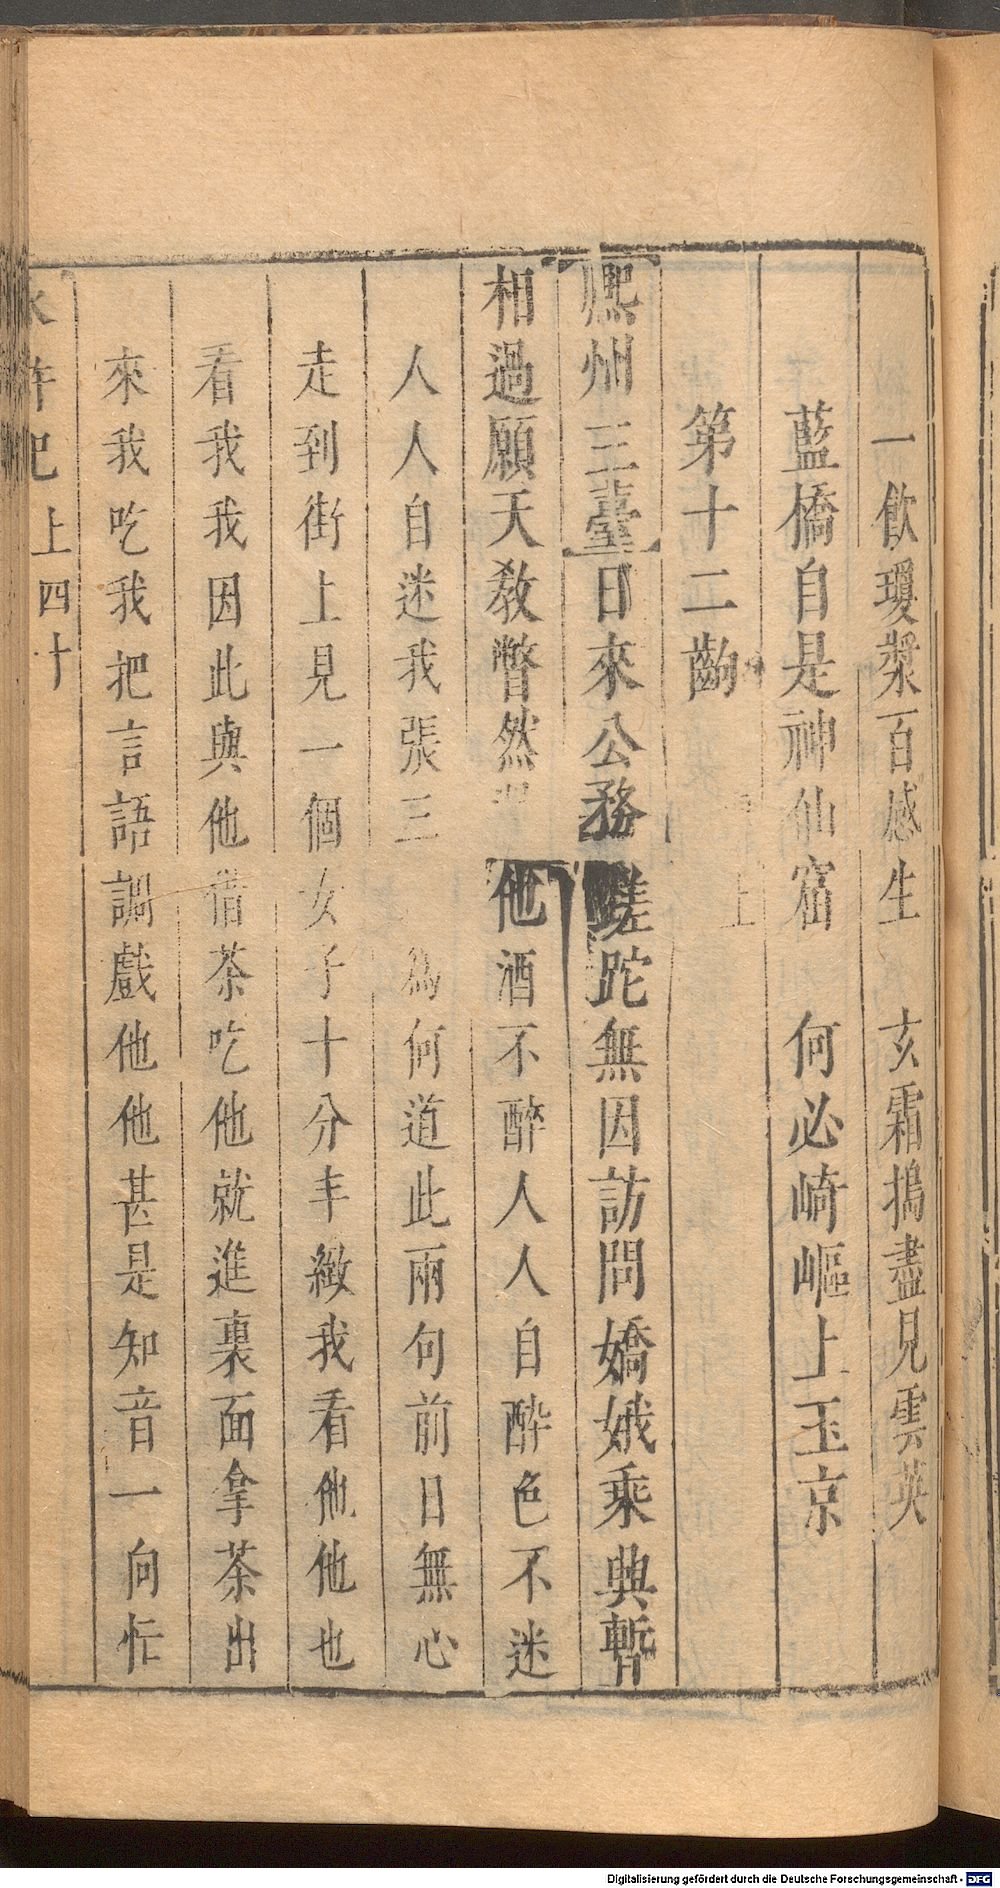 一飲瓊漿百感生　玄霜搗盡見雲英
藍橋自是神仙窟　何必崎嶇上玉京
第十二齣
上
熈州三臺日來公務蹉跎無因訪問嬌娥乘興暫
相過願天教瞥然　他酒不醉人人自醉色不迷
人人自迷我張三　為何道此兩句前日無心
走到街上見一個女子十分丰緻我看他他也
看我我因此與他借茶吃他就進裏面拿茶出
來我吃我把言語調戲他他甚是知音一向忙
水滸記　上四十
Digitalisierung gefördert durch die Deutsche Forschungsgemeinschaft - DFG